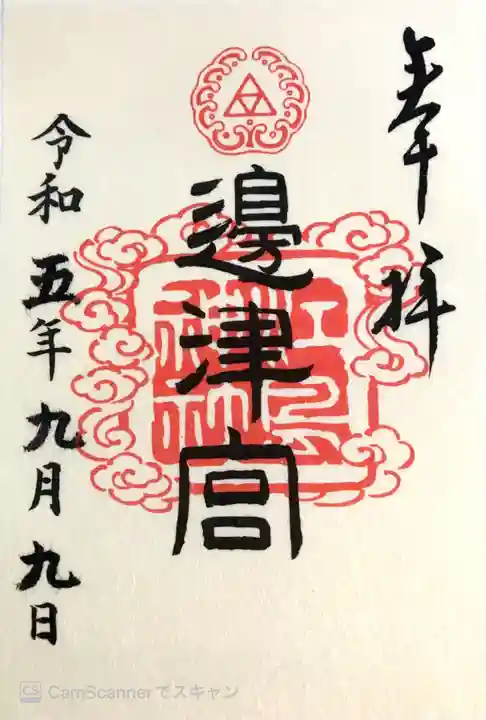 奉拝
邊津宮
令和五年九月九日
CS CamScannerでスキャン